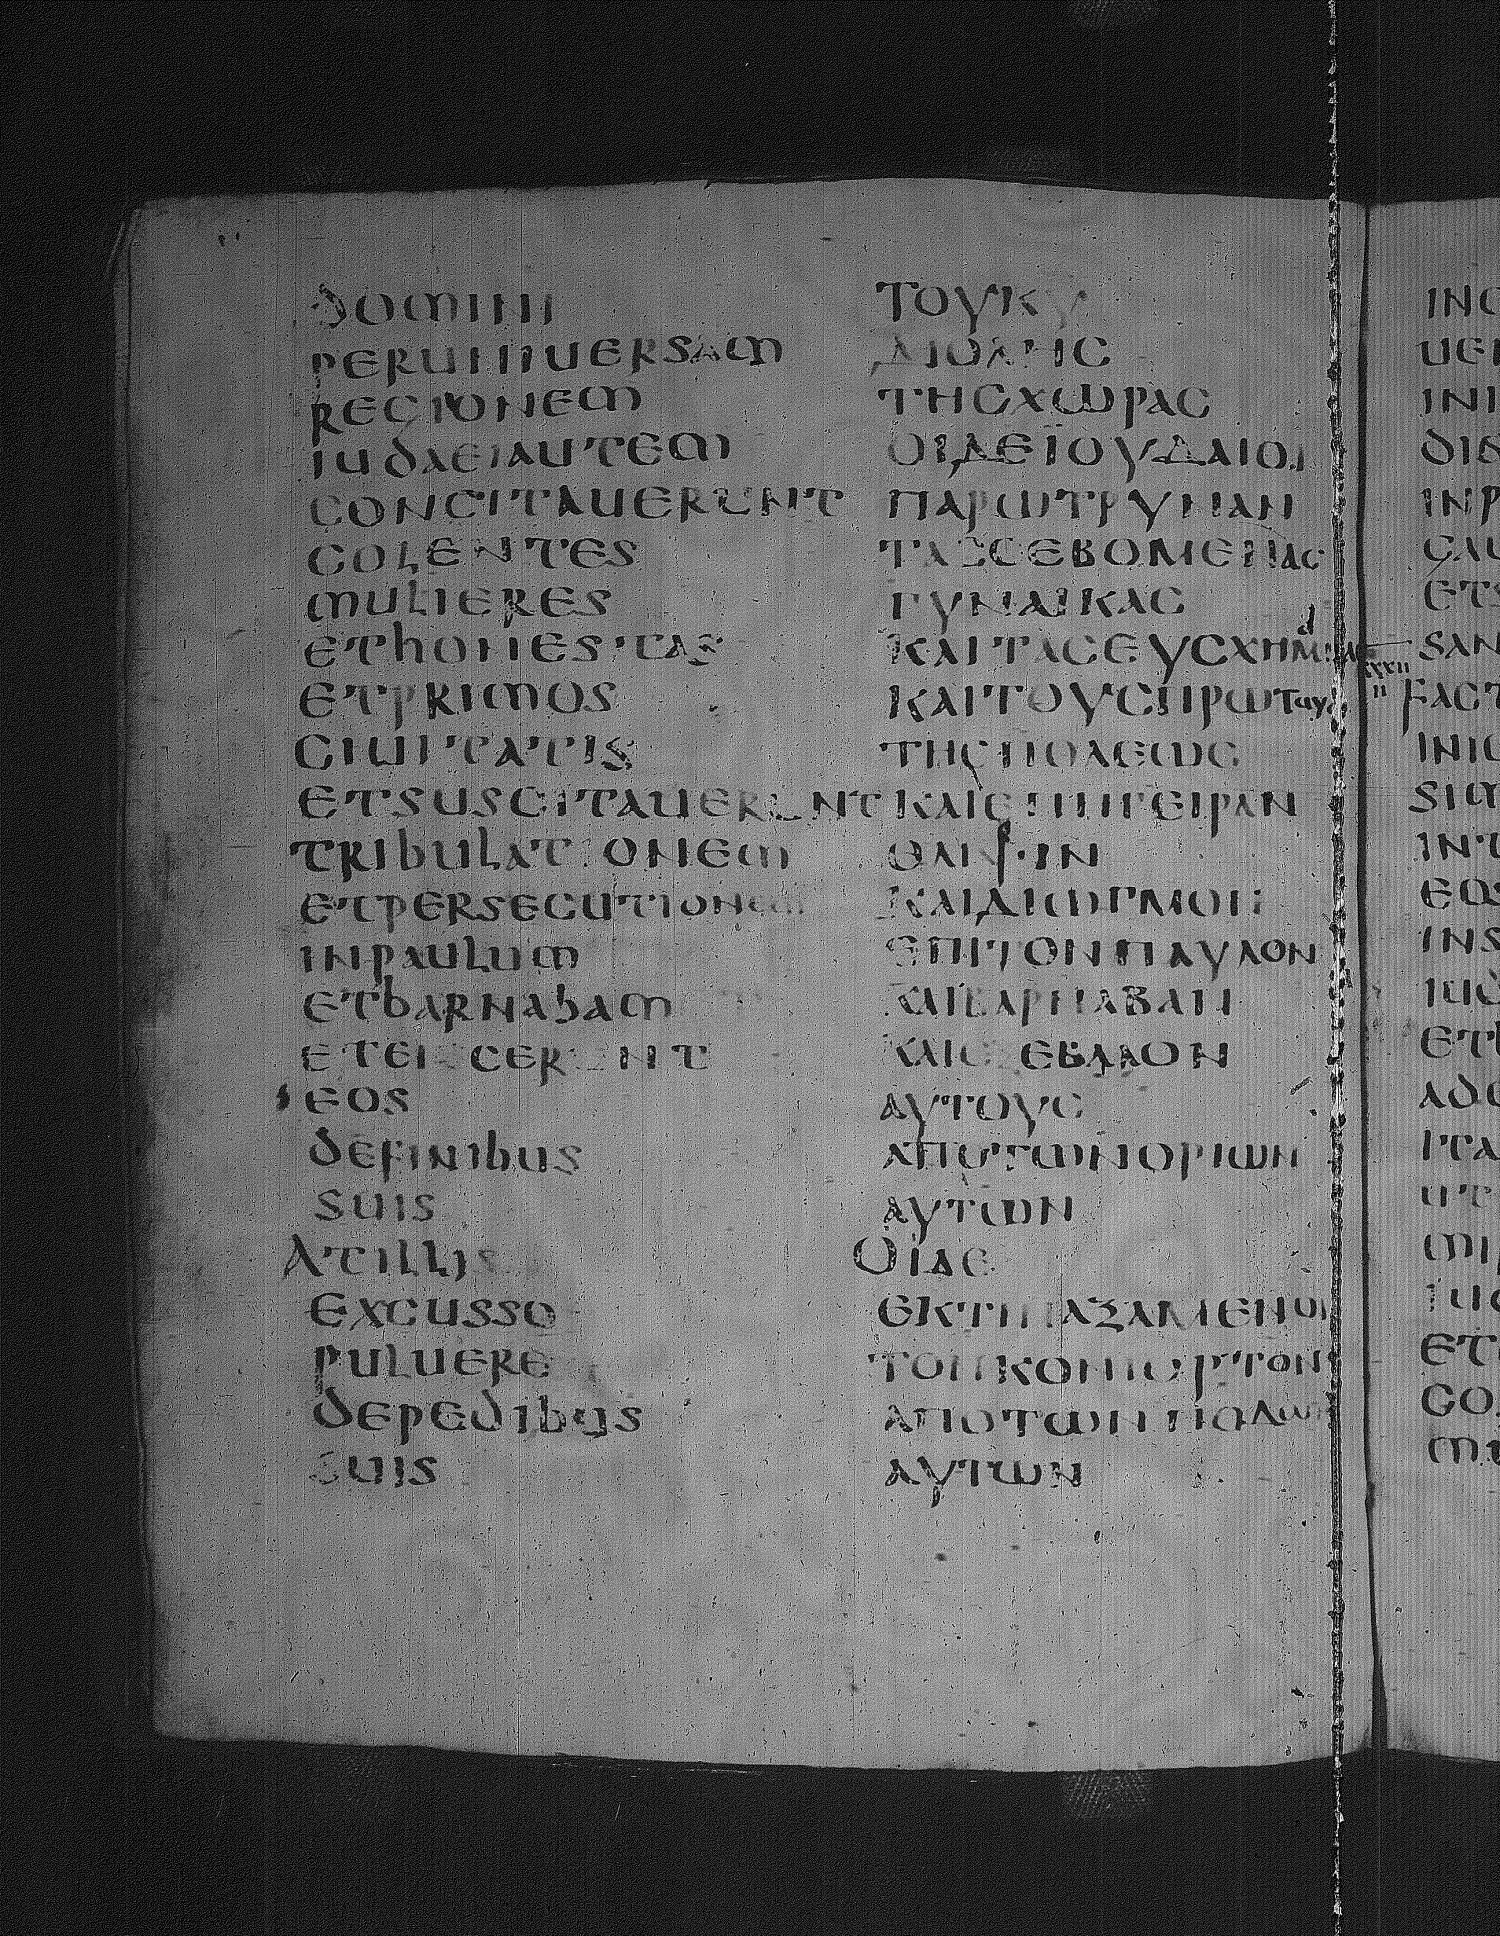 domini
peruniuersam
regionem
iudaeiautem
concitauerunt
colentes
mulieres
ethonestas
etprimos
ciuitatis
etsuscitauerunt
tribulationem
etpersecutionem
inpaulum
etbarnabam
eteiecerunt
eos
definibus
suis
Atilli
excusso
puluere
depedibus
suis
ΤΟΥΚΥ
ΔΙΟΛΗϹ
ΤΗϹΧΩΡΑϹ
ΟΙΔΕΪΟΥΔΑΙΟΙ
ΠΑΡΩΤΡΥΝΑΝ
ΤΑϹϹΕΒΟΜΕΝΑϹ
ΓΥΝΑΙΚΑϹ
ΚΑΙΤΑϹΕΥϹΧΗΜ
ΚΑΙΤΟΥϹΠΡΩΤΟΥϹ
ΤΗϹΠΟΛΕΩϹ
ΚΑΙΕΠΗΓΕΙΡΑΝ
ΘΛΙΨΙΝ
ΚΑΙΔΙΩΓΜΟΝ
ΕΠΙΤΟΝΠΑΥΛΟΝ
ΚΑΙΒΑΡΝΑΒΑΝ
ΚΑΙΕΞΕΒΑΛΟΝ
ΑΥΤΟΥϹ
ΑΠΟΤΩΝΟΡΙΩΝ
ΑΥΤΩΝ
ΟΙΔΕ
ΕΚΤΙΝΑΞΑΜΕΝΟΙ
ΤΟΝΚΟΝΙΟΡΤΟΝ
ΑΠΟΤΩΝΠΟΔΩΝ
ΑΥΤΩΝ